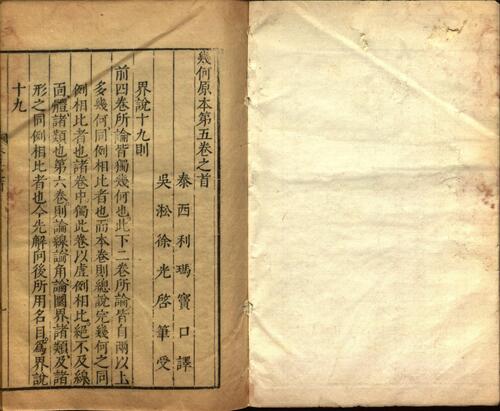 幾何原本第五卷之首
泰西利瑪竇口譯
吳淞徐光啓筆受
界說十九則
前四卷所論皆獨幾何也此下二卷所論皆自兩以上
多幾何同例相比者也而本卷則總說完幾何之同
例相比者也諸卷中獨此卷以虛例相比絕不及線
面體諸類也第六卷則論線論角論圜界諸類及諸
形之同例相比者也今先解向後所用名目爲界說
十九